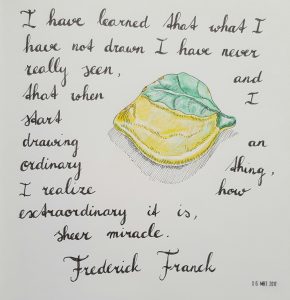 I have learned that what I
have not drawn I have never
really seen, and
that when I
start
drawing an
ordinary thing,
I realize how
extraordinary it is,
sheer miracle.
Frederick Franck